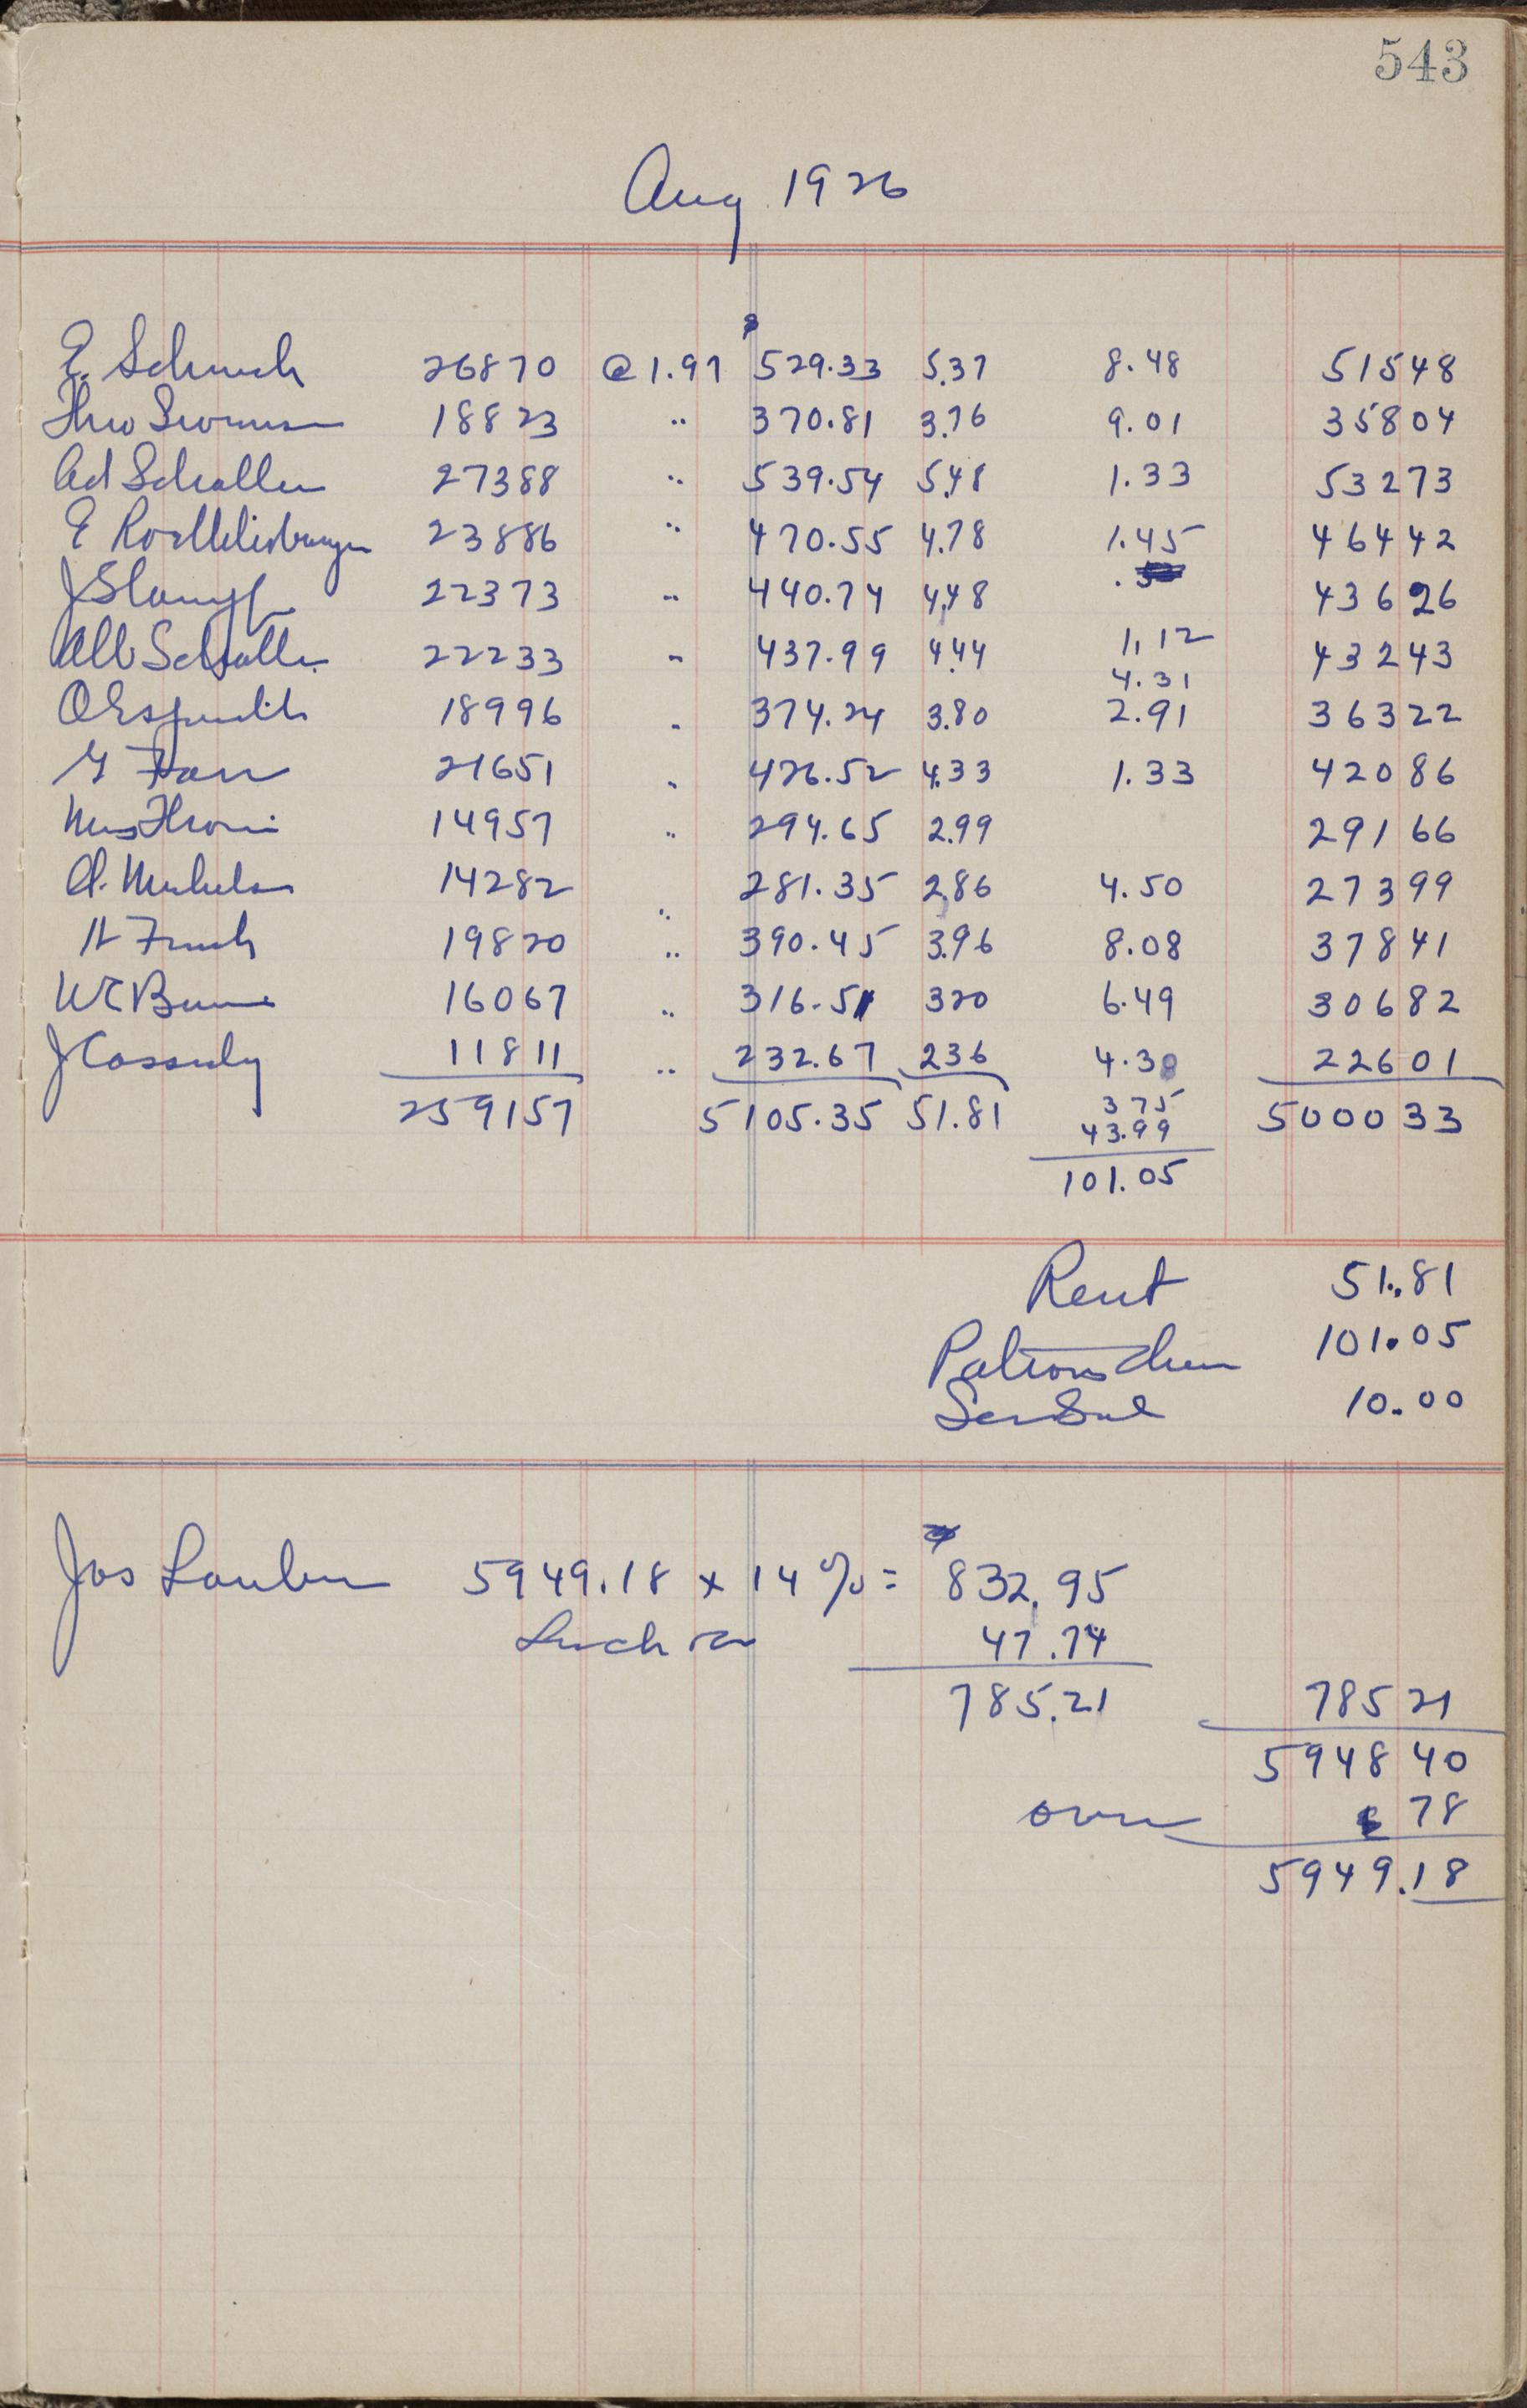 543
Aug 1926
E. Schuch 26870 @ 1.97 529.33 5.37 8.48 515 48
Theo 18823 " 370.81 3.76 9.01 358 04
Ad Schaller 27388 " 539.54 5.48 1.33 532 73
E Roethlisberger 23886 " 470.55 4.78 1.45 464 42
J Stampf 22373 " 440.74 4.48 436 26
Alb Schaller 22233 " 437.99 4.44 1.12 432 43
4.31
18996 " 374.24 3.80 2.91 363 22
21651 " 426.52 4.33 1.33 420 86
Mrs 14957 " 294.65 2.99 291 66
14282 " 281.35 2.86 4.50 273 99
19820 " 390.45 3.96 8.08 378 41
16067 " 316.51 3.20 6.49 306 82
J Cassidy 11811 " 232.67 2.36 4.30 226 01
259157 5105.35 51.81 3 75 5000 33
43.99
101.05
Rent 51.81
Patrons 101.05
10.00
Jos Lauber 5949.18 x 14 % = 832.95
47.74
785.21 785 21
5948 40
over 78
5949.18